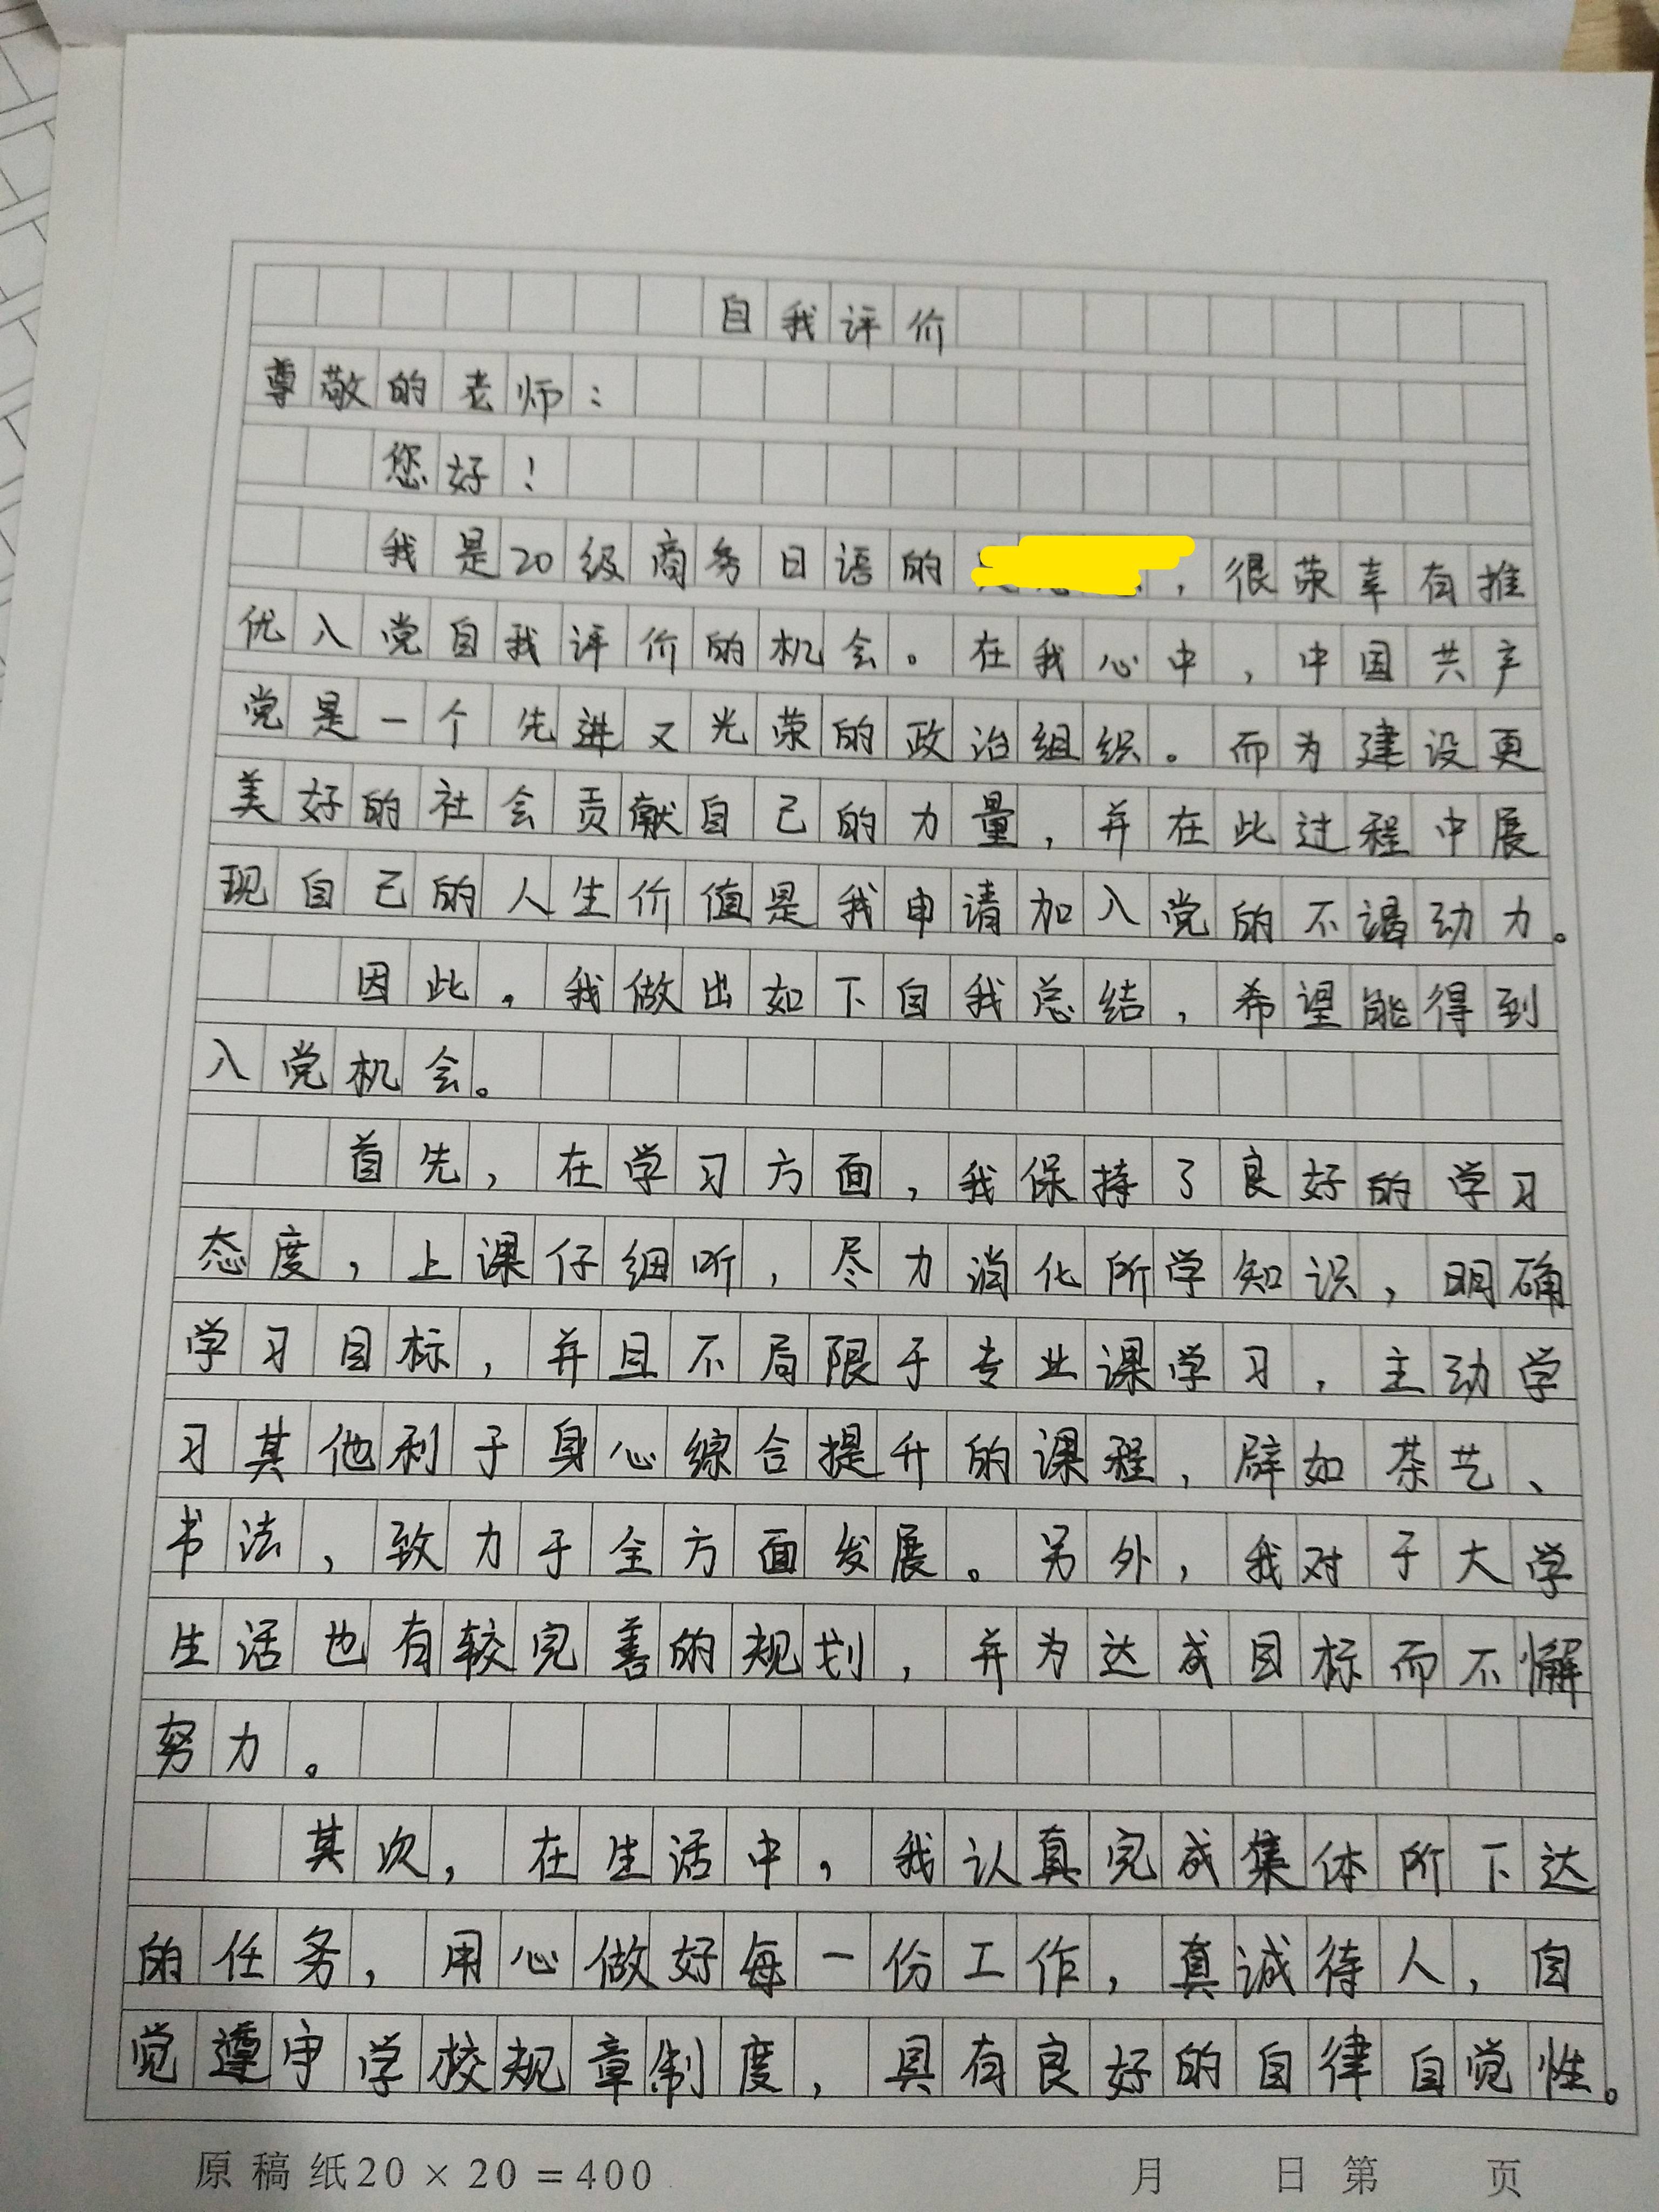 自我评价
尊敬的老师：
您好！
我是20级商务日语的，很荣幸有推
优入党自我评价的机会。在我心中，中国共产
党是一个先进又光荣的政治组织。而为建设更
美好的社会贡献自己的力量，并在此过程中展
现自己的人生价值是我申请加入党的不竭动力。
因此，我做出如下自我总结，希望能得到
入党机会。
首先，在学习方面，我保持了良好的学习
态度，上课仔细听，尽力消化所学知识，明确
学习目标，并且不局限于专业课学习，主动学
习其他利于身心综合提升的课程，辟如茶艺、
书法，致力于全方面发展。另外，我对于大学
生活也有较完善的规划，并为达成目标而不懈
努力。
其次，在生活中，我认真完成集体所下达
的任务，用心做好每一份工作，真诚待人，自
觉遵守学校规章制度，具有良好的自律自觉性。
原稿纸20×20=400 月 日 第 页